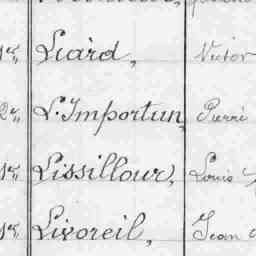 1er, Liard, Victor
2e, L'Importun, Pierre
1er, Lissillour, Louis
1er, Livoreil, Jean